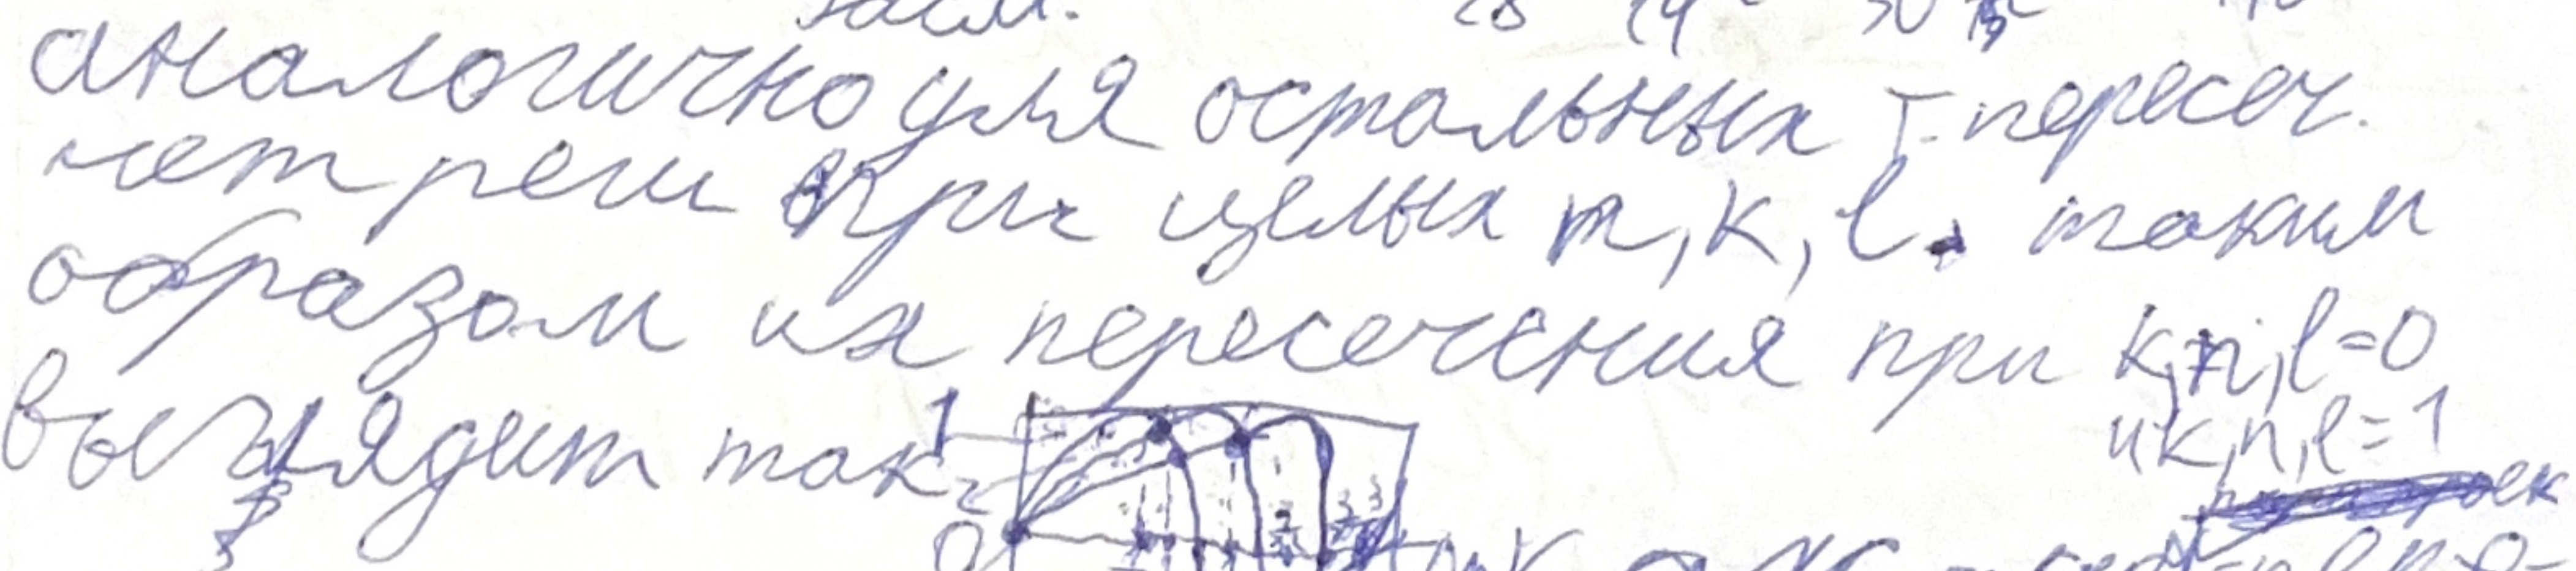 аналогично для остальных т. пересеч.
нет реш при целых n, k, l. таким
образом их пересечения при k, n, l = 0
и k, n, l = 1
выглядит так: 1
0